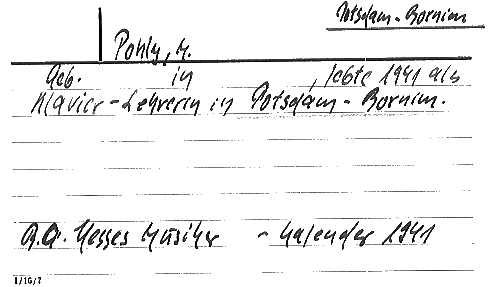 Potsdam - Bornim
Pohly, H.
Geb. in , lebte 1941 als
Klavier - Lehrerin in Potsdam - Bornim.
Q.Q. Hesses Musiker - Kalender 1941
1/16/7